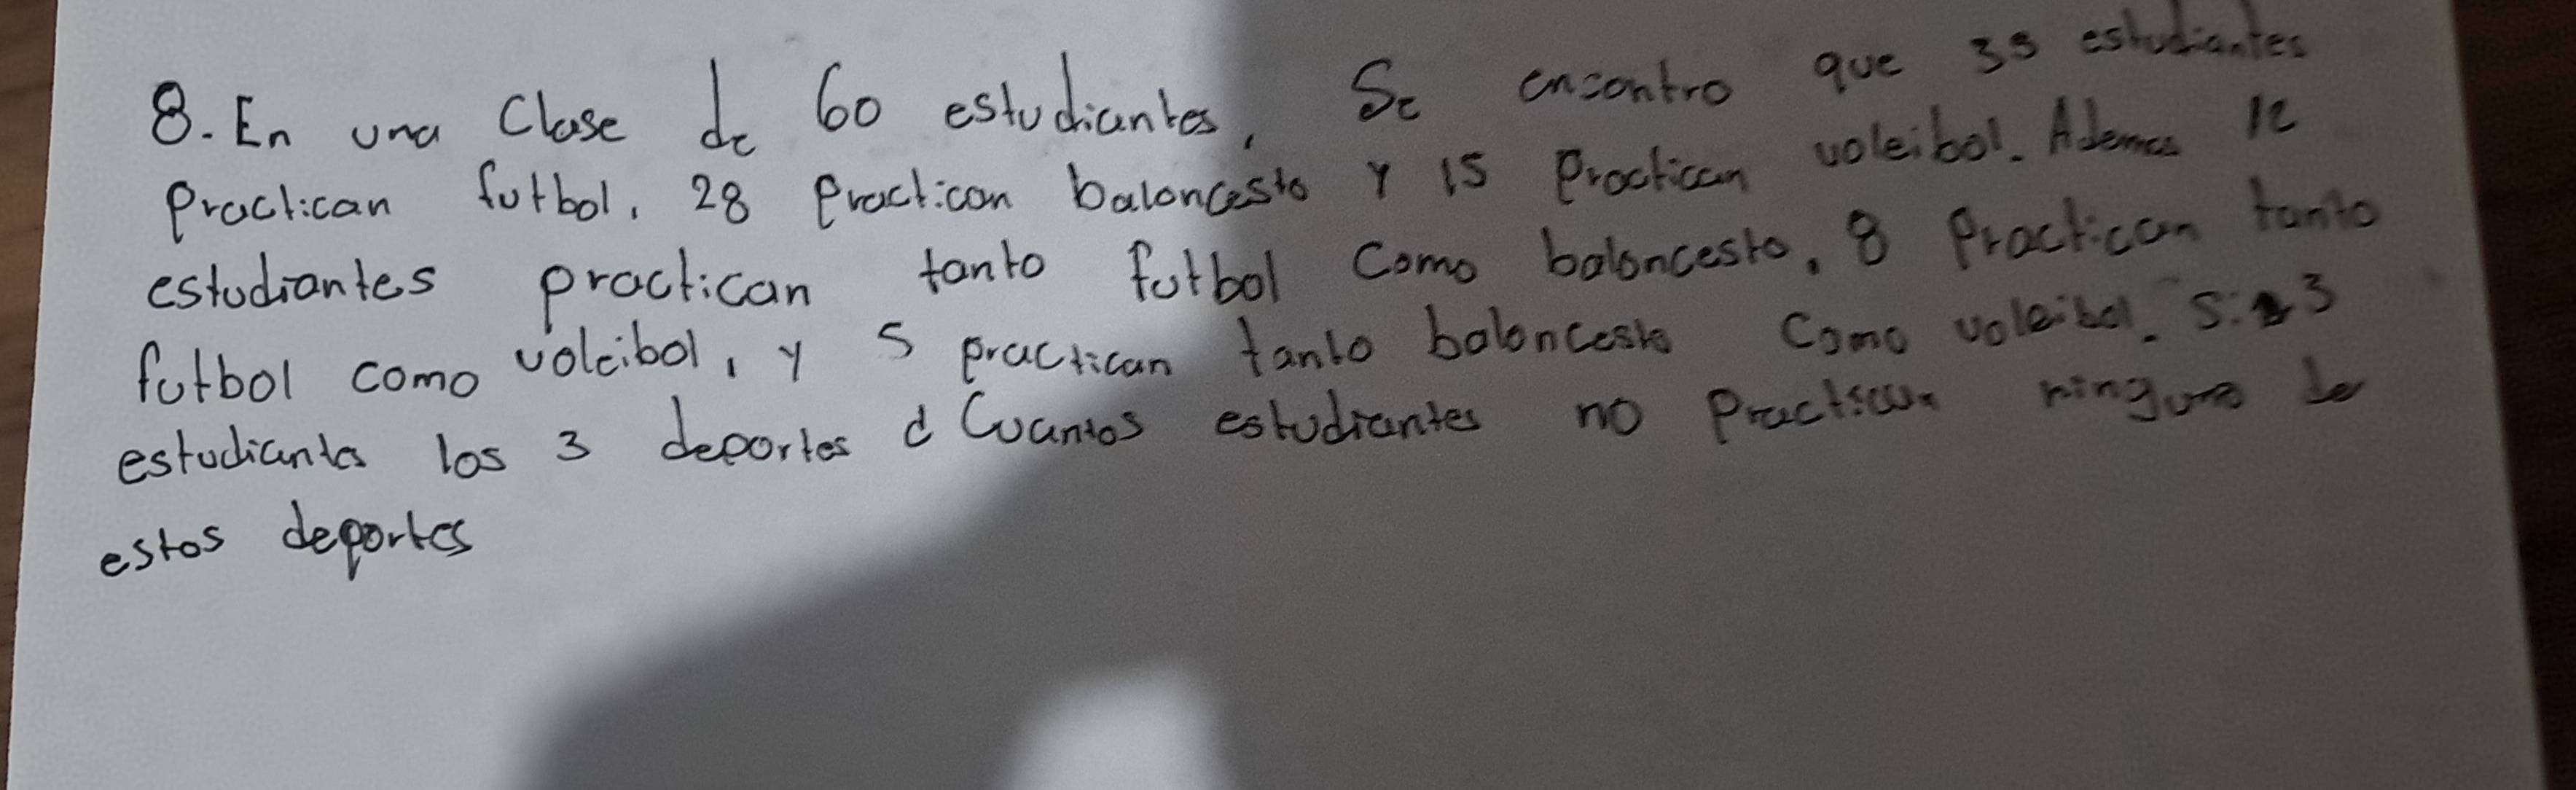 8. En una Clase de 60 estudiantes, Se encontro que 35 estudiantes
practican futbol, 28 practican baloncesto y 15 practican voleibol. Ademas 12
estudiantes practican tanto futbol como baloncesto, 8 practican tanto
futbol como voleibol, y 5 practican tanto baloncesto como voleibol. Si 3
estudiantes los 3 deportes ¿ Cuantos estudiantes no practican ninguno de
estos deportes